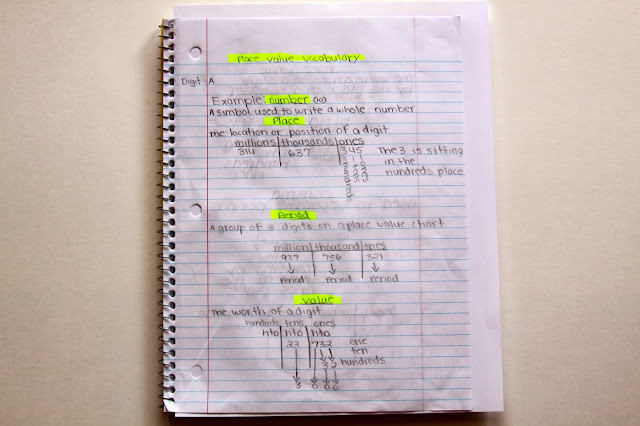 Place value vocabulary
Digit: A
Example: number (10)
A simbol used to write a whole number
Place
The location or position of a digit
millions thousands ones
314 637 345 The 3 is sitting
in the
hundreds place
ones
tens
hundreds
Period
A group of 3 digits on a place value chart
million thousand ones
937 756 321
Period Period Period
Value
The worth of a digit
hundreds tens ones
hto hto hto
23 732 one
ten
32 hundreds
3 0 0 0